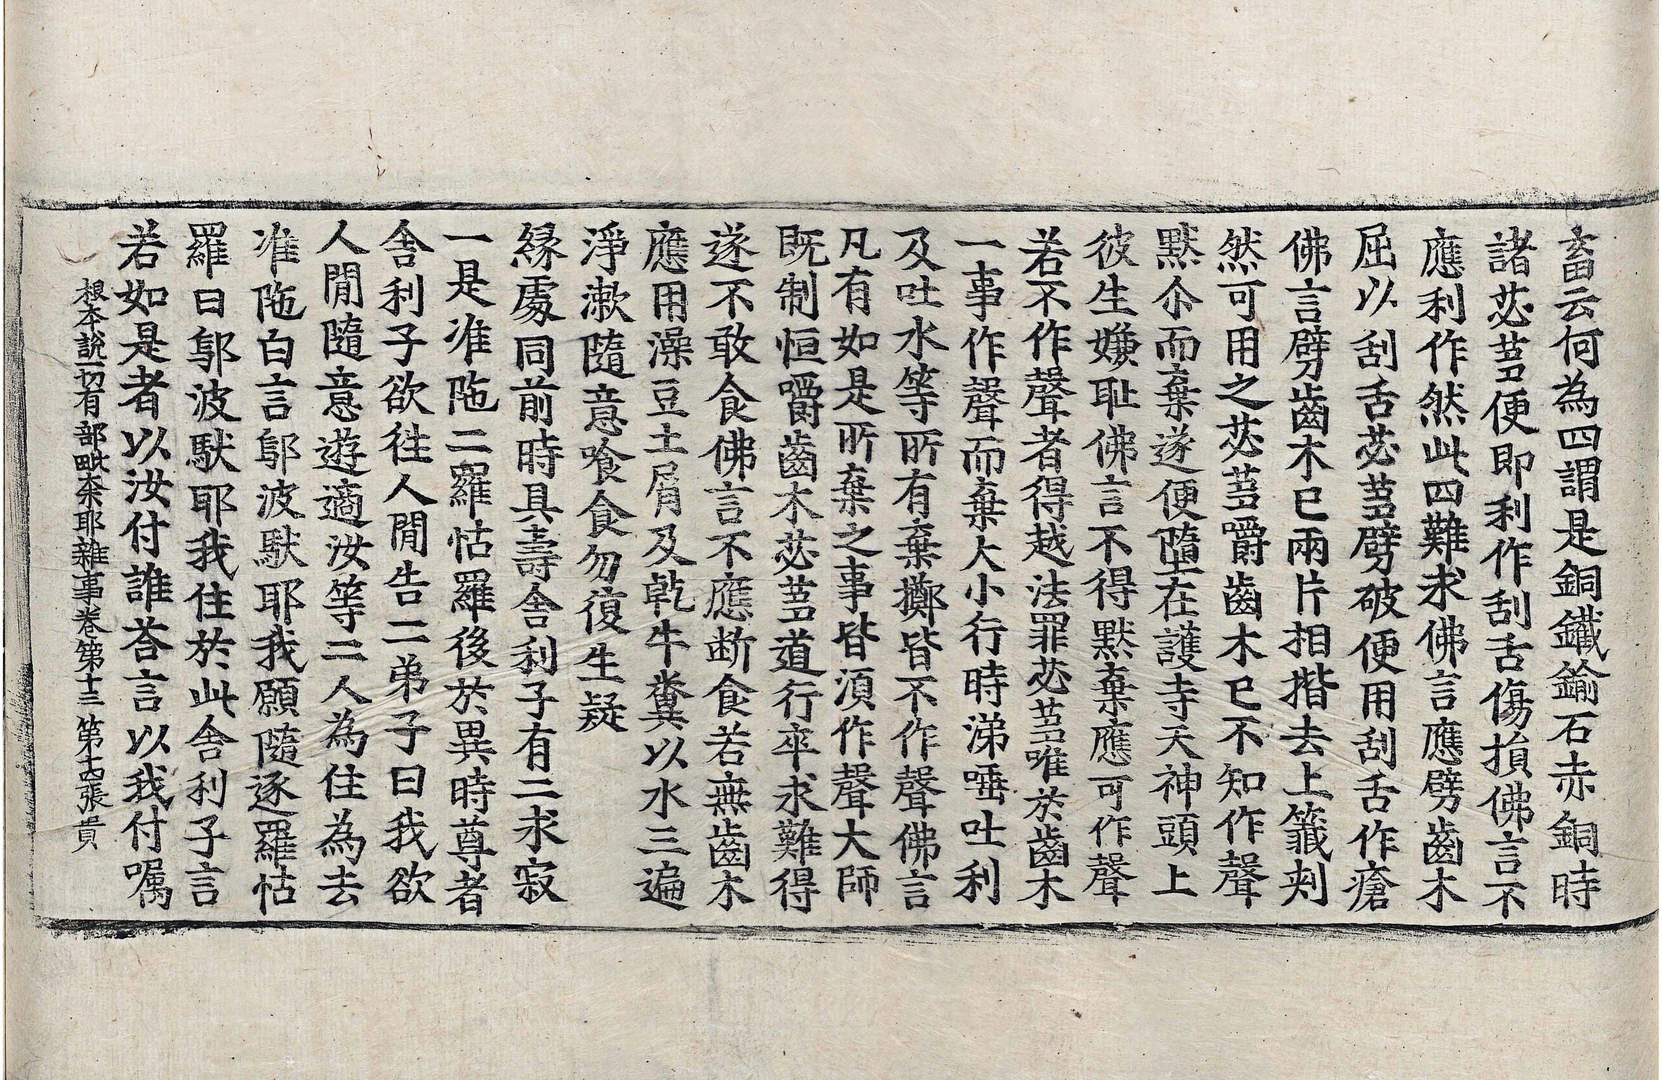 畜云何為四謂是銅鐵鍮石赤銅時
諸苾芻便即利作刮舌傷損佛言不
應利作然此四難求佛言應劈齒木
屈以刮舌苾芻劈破便用刮舌作瘡
佛言劈齒木已兩片相揩去上籤刾
然可用之苾芻嚼齒木已不知作聲
默尒而棄遂便墮在護寺天神頭上
彼生嫌耻佛言不得默棄應可作聲
若不作聲者得越法罪苾芻唯於齒木
一事作聲而棄大小行時涕唾吐利
及吐水等所有棄擲皆不作聲佛言
凡有如是所棄之事皆須作聲大師
既制恒嚼齒木苾芻道行卒求難得
遂不敢食佛言不應断食若無齒木
應用澡豆土屑及乹牛糞以水三遍
淨漱隨意飡食勿復生疑
緣處同前時具壽舍利子有二求寂
一是准陁二羅怙羅後於異時尊者
舍利子欲徃人閒告二弟子曰我欲
人閒隨意遊適汝等二人為住為去
准陁白言鄔波馱耶我願隨逐羅怙
羅曰鄔波馱耶我住於此舍利子言
若如是者以汝付誰荅言以我付囑
根本說一切有部毗柰耶雜事卷第十三 第十四張 貴